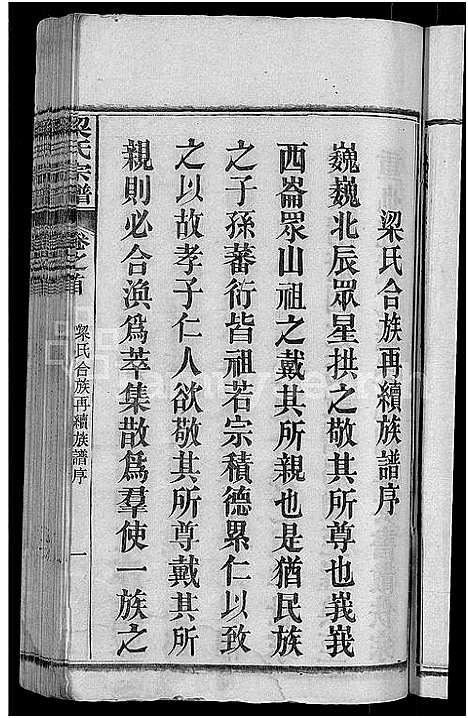 梁氏合族再續族譜序
巍巍北辰眾星拱之敬其所尊也峩峩
西崙眾山祖之戴其所親也是猶民族
之子孫蕃衍皆祖若宗積德累仁以致
之以故孝子仁人欲敬其所尊戴其所
親則必合渙為萃集散為羣使一族之
梁氏宗譜
卷之首
梁氏合族再續族譜序
一